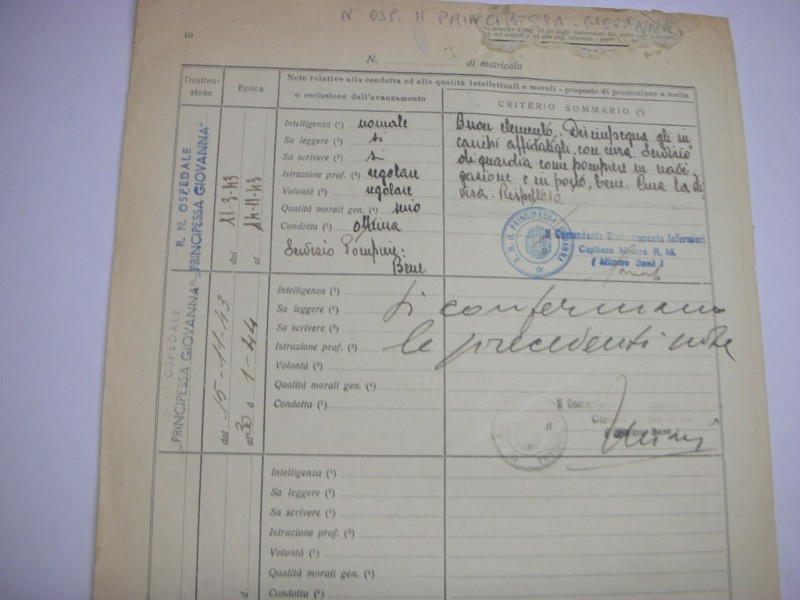 N. OSP. 11 PRINCIPESSA GIOVANNA
10
N. di matricola
Destina-
zione
Epoca
Note relative alla condotta ed alle qualità intellettuali e morali - proposte di promozione a scelta
o esclusione dall'avanzamento
CRITERIO SOMMARIO (³)
R. N. OSPEDALE
"PRINCIPESSA GIOVANNA"
dal 11-3-43
al 14-11-43
Intelligenza (¹) normale
Sa leggere (²) si
Sa scrivere (²) si
Istruzione prof. (¹) regolare
Volontà (¹) regolare
Qualità morali gen. (¹) serio
Condotta (¹) ottima
Servizio Pompiere:
Bene
Buon elemento. Disimpegna gli in
carichi affidatigli con cura. Servizio
di guardia come pompiere in navi
gazione e in porto, bene. Cura la di
visa. Rispettoso
PRINCIPESSA
Il Comandante Distaccamento Infermieri
Capitano Medico R. M.
OSPEDALE
"PRINCIPESSA GIOVANNA"
dal 15-11-43
al 30-1-44
Intelligenza (¹)
Sa leggere (²)
Sa scrivere (²)
Istruzione prof. (¹)
Volontà (¹)
Qualità morali gen. (¹)
Condotta (¹)
Si confermano
le precedenti note
Il
Intelligenza (¹)
Sa leggere (²)
Sa scrivere (²)
Istruzione prof. (¹)
Volontà (¹)
Qualità morali gen. (¹)
Condotta (¹)